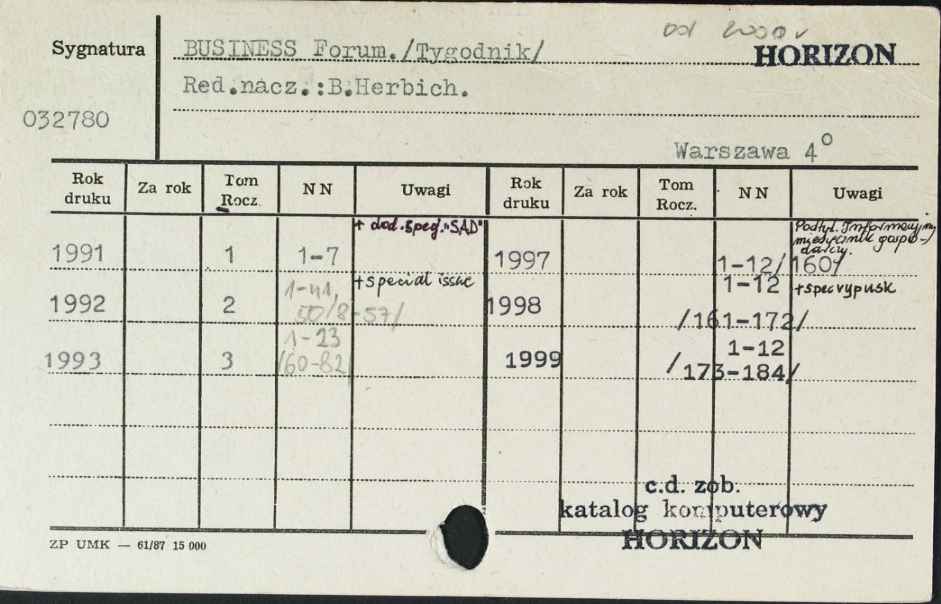 od 2000 r
Sygnatura
BUSINESS Forum./Tygodnik/
HORIZON
Red.nacz.:B.Herbich.
032780
Warszawa 4°
Rok druku Za rok Tom Rocz. NN Uwagi Rok druku Za rok Tom Rocz. NN Uwagi
+ dod. spec. "SAD"
Podtyt. Informacyjny
miesięcznik gospo-
darczy.
1991 1 1-7 1997 1-12/160/
+special issue
1-12 +specvypusk
1992 2 1-41, 1998
/8-57/ /161-172/
1-23
1-12
1993 3 /60-82/ 1999
/173-184/
c.d. zob.
katalog komputerowy
HORIZON
ZP UMK — 61/87 15 000